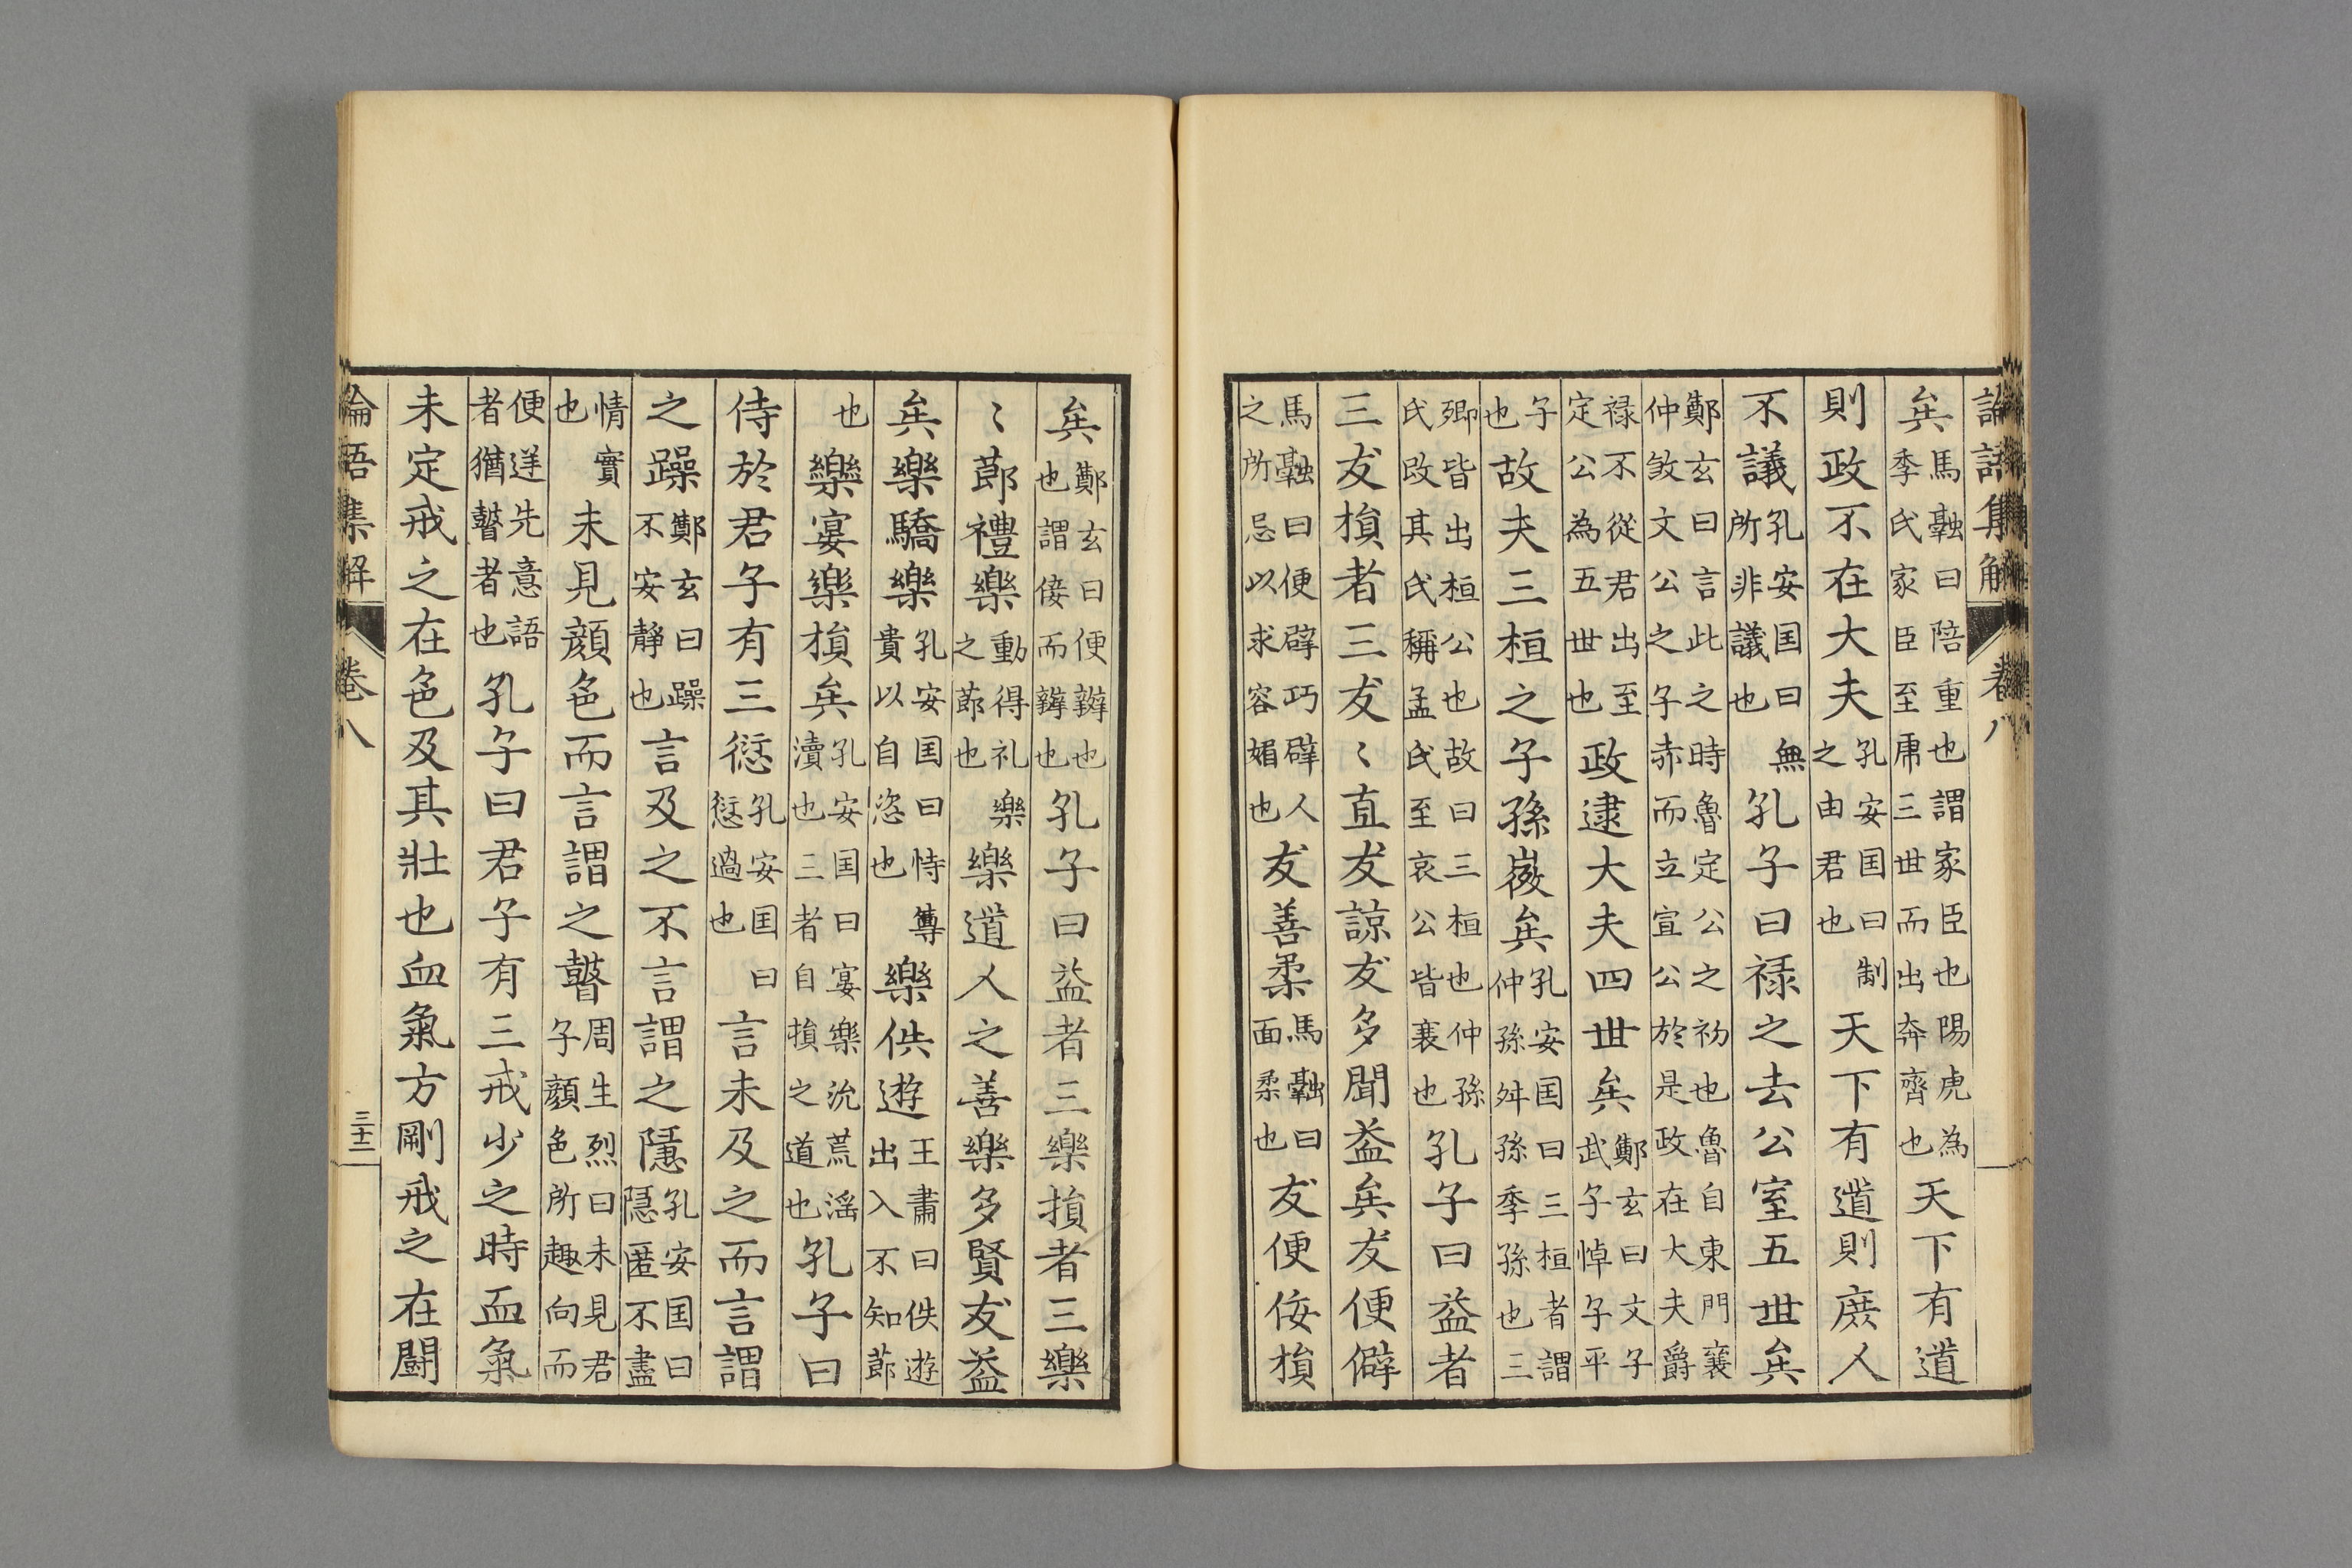 論語集解 卷八
矣馬融曰陪重也謂家臣也陽虎為季氏家臣至虎三世而出奔齊也天下有道
則政不在大夫孔安国曰制之由君也天下有道則庶人
不議孔安国曰無所非議也孔子曰禄之去公室五世矣
鄭玄曰言此之時魯定公之初也魯自東門襄仲敘文公之子赤而立宣公於是政在大夫爵
禄不從君出至定公為五世也政逮大夫四世矣鄭玄曰文子武子悼子平
子也故夫三桓之子孫微矣孔安国曰三桓者謂仲孫舛孫季孫也三
卿皆出桓公也故曰三桓也仲孫氏改其氏稱孟氏至哀公皆衰也孔子曰益者
三友損者三友〻直友諒友多聞益矣友便僻
馬融曰便辟巧辟人之所忌以求容媚也友善柔馬融曰面柔也友便佞損
矣鄭玄曰便辯也也謂佞而辯也孔子曰益者三樂損者三樂
〻節禮樂動得礼樂之節也樂道人之善樂多賢友益
矣樂驕樂孔安国曰恃尊貴以自恣也樂佚遊王肅曰佚遊出入不知節
也樂宴樂損矣孔安国曰宴樂沉荒滛瀆也二者自損之道也孔子曰
侍於君子有三愆孔安国曰愆過也言未及之而言謂
之躁鄭玄曰躁不安静也言及之不言謂之隱孔安国曰隱匿不盡
情實也未見顔色而言謂之瞽周生烈曰未見君子顔色所趣向而
便逆先意語者猶瞽者也孔子曰君子有三戒少之時血氣
未定戒之在色及其壯也血氣方剛戒之在鬪
論語集解 卷八 三十二